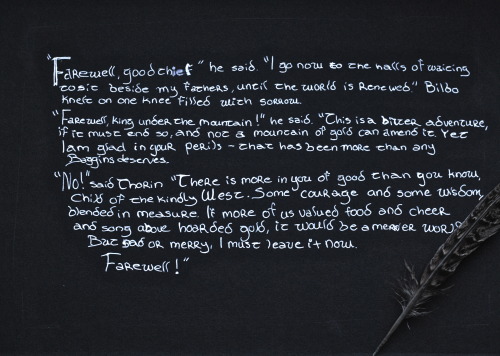 "Farewell, good thief" he said. "I go now to the halls of waiting
to sit beside my fathers, until the world is renewed." Bilbo
knelt on one knee filled with sorrow.
"Farewell, king under the mountain!" he said. "This is a bitter adventure,
if it must end so, and not a mountain of gold can amend it. Yet
I am glad in your perils - that has been more than any
Baggins deserves.
"No!" said Thorin "There is more in you of good than you know,
Child of the kindly West. Some courage and some wisdom,
blended in measure. If more of us valued food and cheer
and song above hoarded gold, it would be a merrier world.
But sad or merry, I must leave it now.
Farewell!"